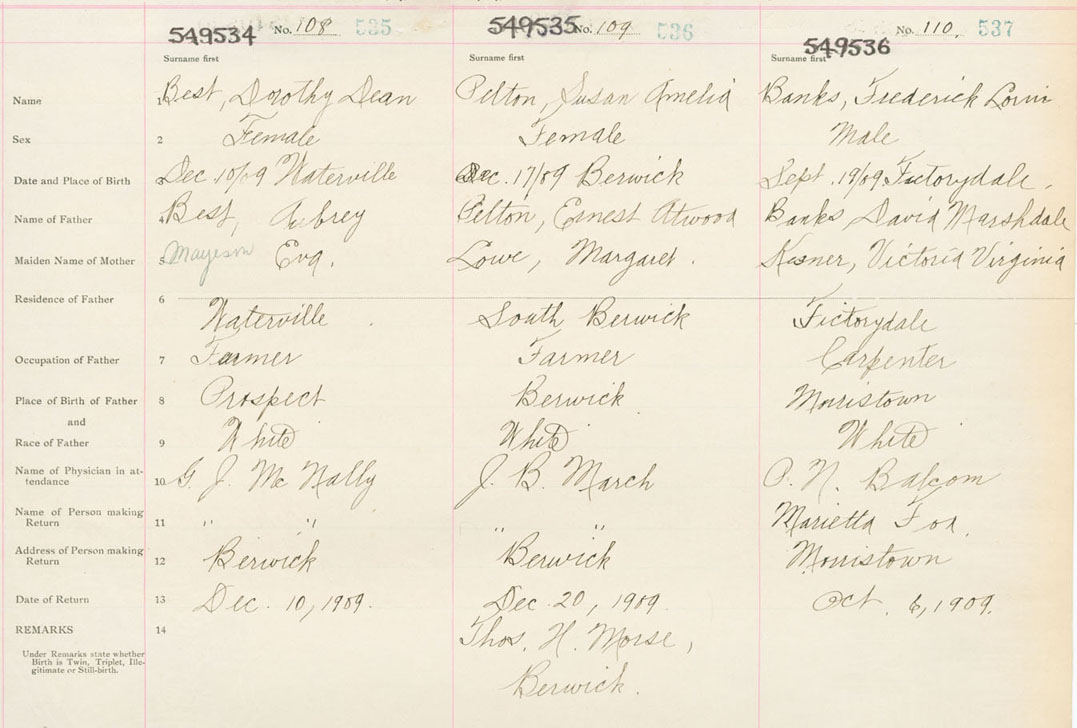 549534 No. 108 535 549535 No. 109 536 549536 No. 110. 537
Surname first Surname first Surname first
Name 1 Best, Dorothy Dean Pelton, Susan Amelia Banks, Frederick
Sex 2 Female Female Male
Date and Place of Birth 3 Dec 10/09 Waterville Dec. 17/09 Berwick Sept. 19/09 Factorydale.
Name of Father 4 Best, Aubrey Pelton, Ernest Atwood Banks, David Marshdale
Maiden Name of Mother 5 Eva. Lowe, Margaret. Victoria Virginia
Residence of Father 6
Waterville South Berwick Factorydale
Occupation of Father 7 Farmer Farmer Carpenter
Place of Birth of Father 8 Prospect Berwick Morristown
and
Race of Father 9 White White White
Name of Physician in at-
tendance 10 G. J. McNally J. B. March P. N. Balcom
Name of Person making
Return 11 " " " " Marietta Fox.
Address of Person making
Return 12 Berwick Berwick Morristown
Date of Return 13 Dec. 10, 1909. Dec. 20, 1909. Oct. 6, 1909.
REMARKS 14 Thos. H. Morse,
Under Remarks state whether
Birth is Twin, Triplet, Ille-
gitimate or Still-birth.
Berwick.